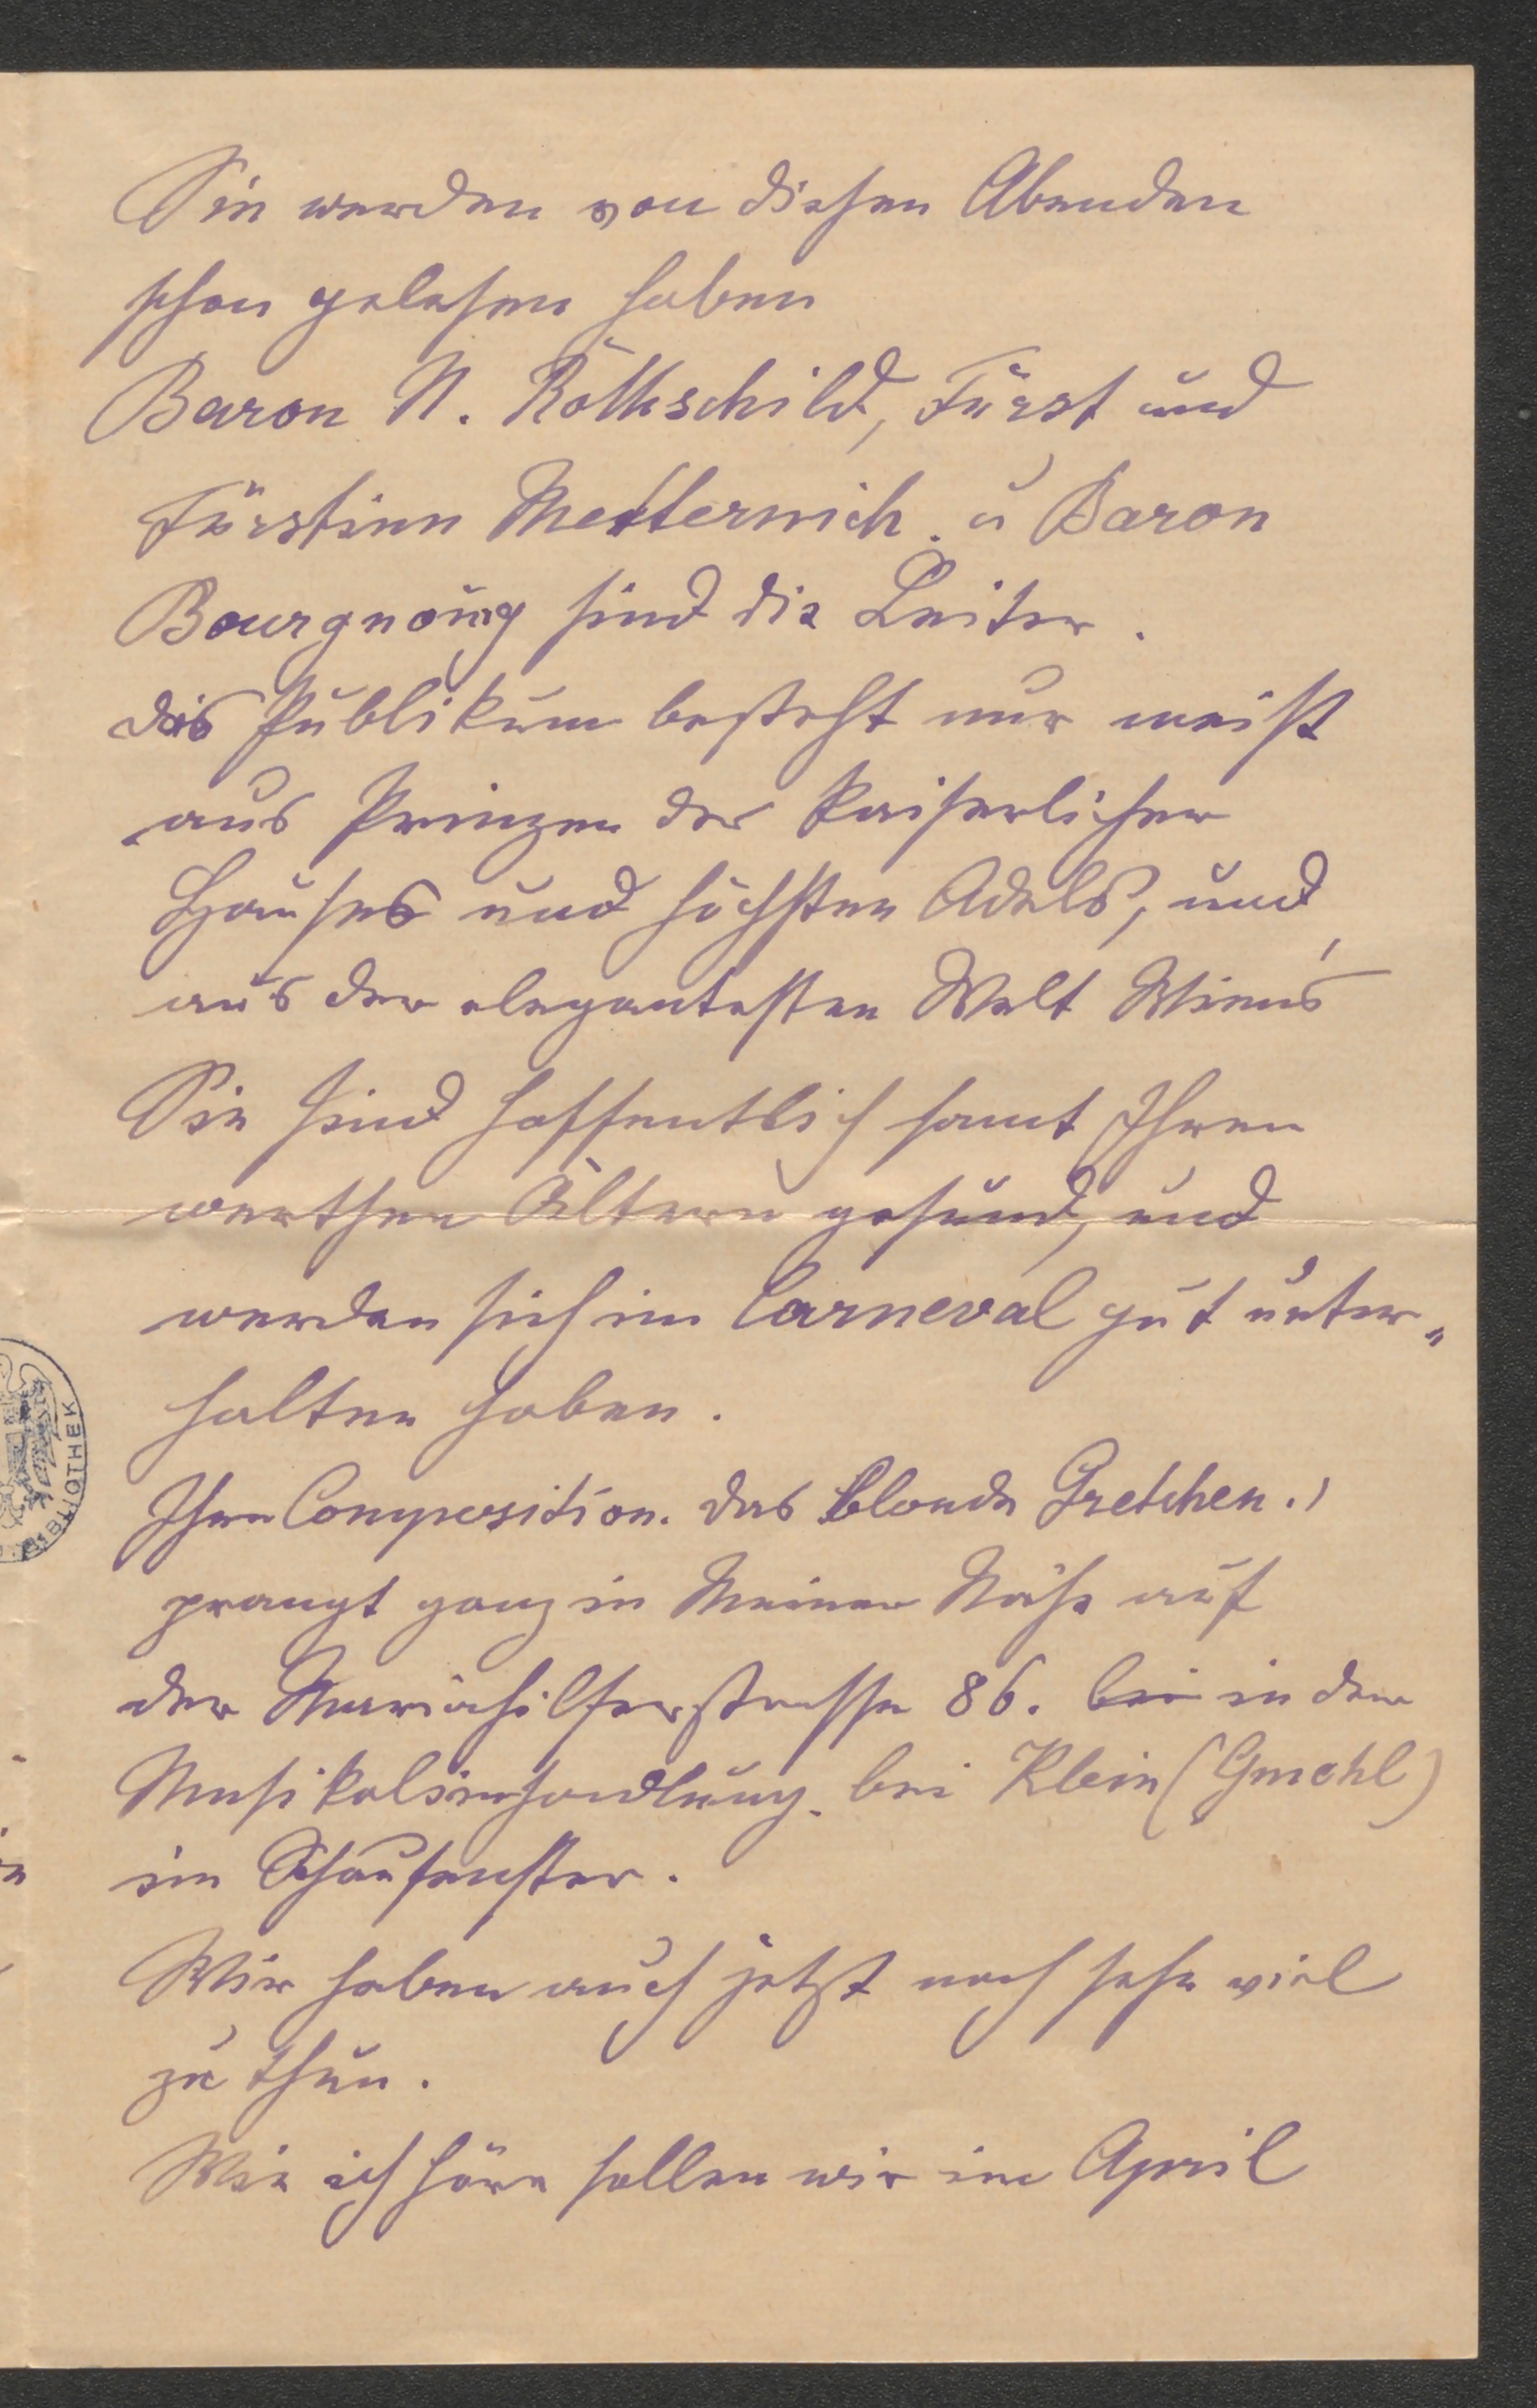 Sie werden von diesen Abenden
schon gelesen haben
Baron N. Rothschild, Fürst und
Fürstinn Metternich. u Baron
Bourgnoing sind die Leiter.
das Publikum besteht nur meist
aus Prinzen der Kaiserlichen
Hauses und höchsten Adels, und
aus der elegantesten Welt Wien's
Sie sind hoffentlich samt Ihren
werthen Ältern gesund, und
werden sich im Carneval gut unter„
halten haben.
Ihre Composition. das blonde Gretchen.)
prangt ganz in Meiner Nähe auf
der Mariahilferstrasse 86. bei in der
Musikalienhandlung. bei Klein (Gmehl)
im Schaufenster.
Wir haben auch jetzt noch sehr viel
zu thun.
Wie ich höre sollen wir im April
BIBLIOTHEK